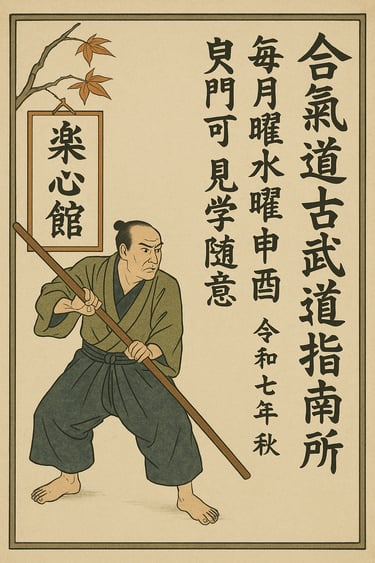 合氣道古武道指南所
毎月曜水曜申酉
令和七年秋
門可見学随意
楽心館